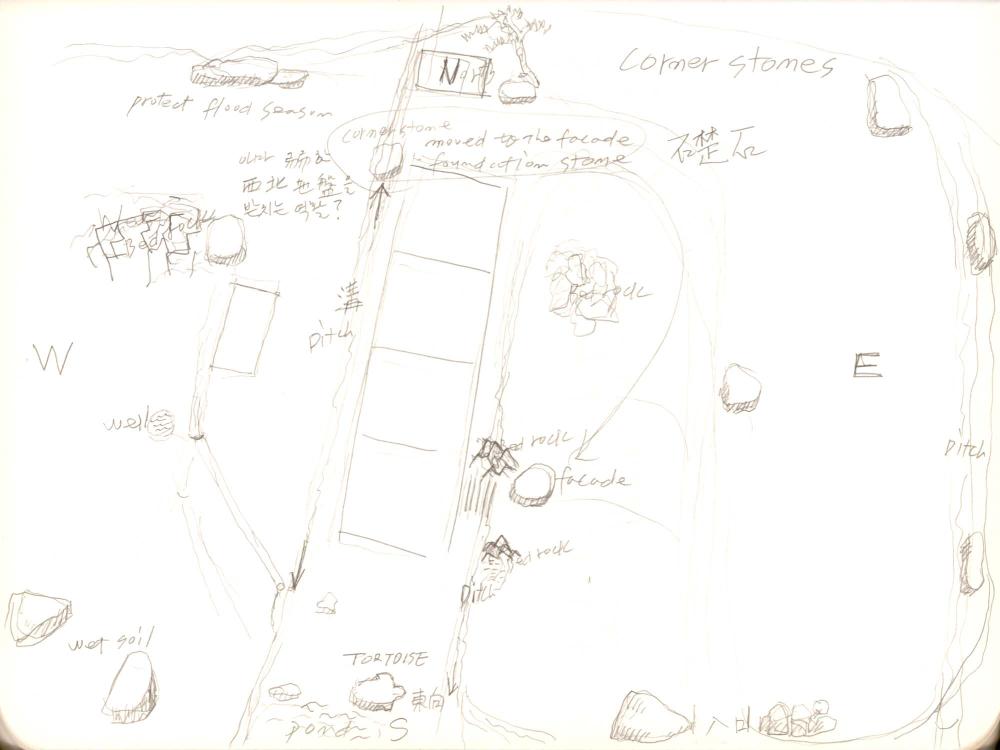 North
corner stones
protect flood season
cornerstone
moved to the facade
foundation stone
石楚石
아마 弱한
西北 地盤을
받치는 역할?
Bedrock
Bedrock
溝
Ditch
W
E
well
Bedrock
facade
Ditch
Bedrock
Ditch
wet soil
TORTOISE
東向
pond
S
入口